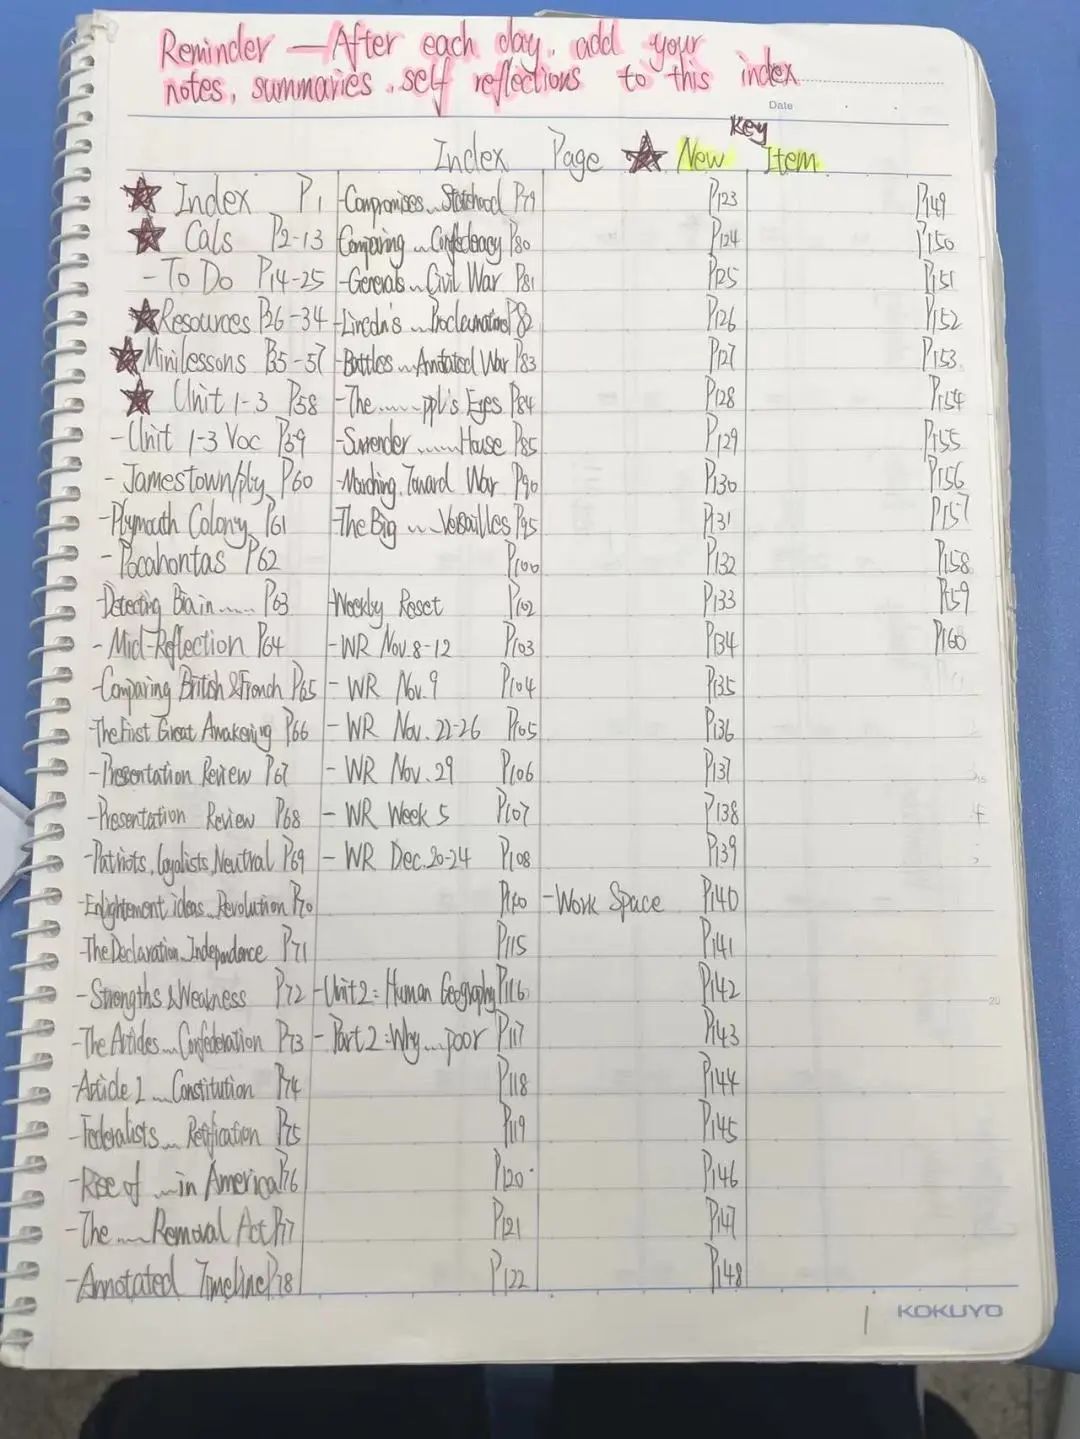 Reminder — After each day, add your
notes, summaries, self reflections to this index
Date
Key
Index Page ★ New Item
★ Index P1
★ Cals P2-13
- To Do P14-25
★ Resources P26-34
★ Minilessons P35-57
★ Unit 1-3 P58
- Unit 1-3 Voc P59
- Jamestown/ply P60
- Plymouth Colony P61
- Pocahontas P62
- Detecting Biain...... P63
- Mid-Reflection P64
- Comparing British & French P65
- The First Great Awakening P66
- Presentation Review P67
- Presentation Review P68
- Patriots, Loyalists, Neutral P69
- Enlightement ideas...Revolution P70
- The Declaration...Independence P71
- Strengths & Weakness P72
- The Articles...Confederation P73
- Article 1 ... Constitution P74
- Federalists ... Ratification P75
- Rise of ... in America P76
- The ... Removal Act P77
- Annotated Timeline P78
- Compromises...Statehood P79
Comparing ... Confedeacy P80
- Generals ... Civil War P81
- Lincoln's ... Proclamation P82
- Battles ... Annotated War P83
- The ...... ppl's Eyes P84
- Surrender ...... House P85
- Marching Toward War P90
- The Big ... Versailles P95
P100
- Weekly Reset P102
- WR Nov.8-12 P103
- WR Nov.9 P104
- WR Nov.22-26 P105
- WR Nov.29 P106
- WR Week 5 P107
- WR Dec.20-24 P108
P115
- Unit2: Human Geography P116
- Part 2: Why...poor P117
P118
P119
P120
P121
P122
P123
P124
P125
P126
P127
P128
P129
P130
P131
P132
P133
P134
P135
P136
P137
P138
P139
- Work Space P140
P141
P142
P143
P144
P145
P146
P147
P148
P149
P150
P151
P152
P153
P154
P155
P156
P157
P158
P159
P160
20
1 KOKUYO